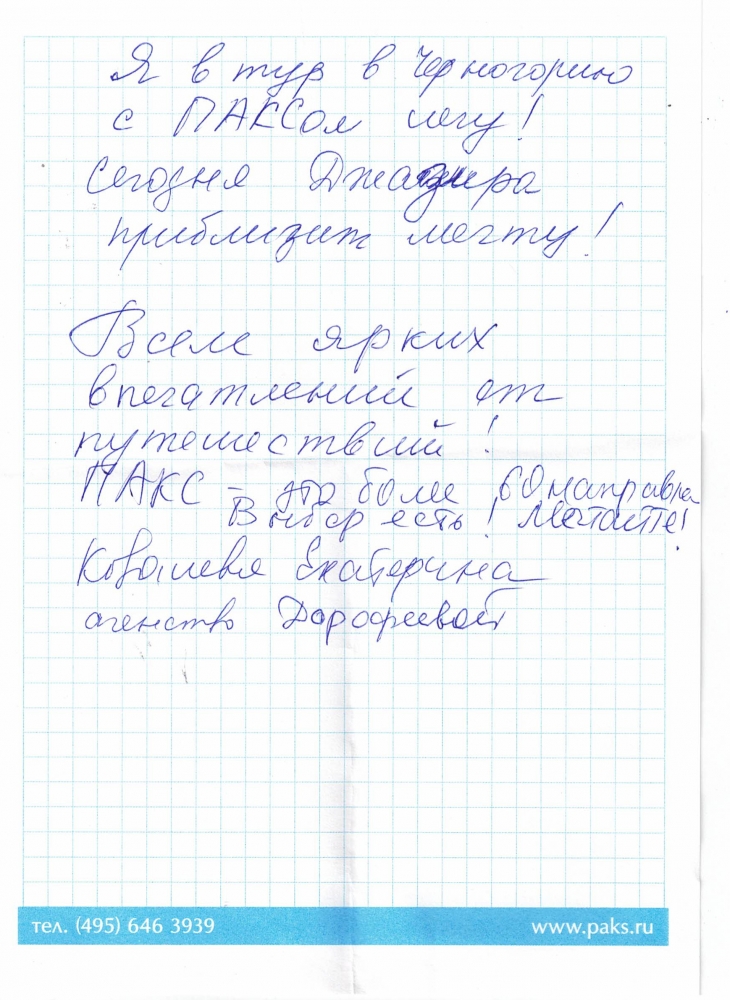 Я в тур в Черногорию
с ПАКСом лечу!
Сегодня Джазира
приблизит мечту!
Всем ярких
впечатлений от
путешествий!
ПАКС – это более 60 направлен
Выбор есть! Мечтайте!
Ковалева Екатерина
агенство Дорофеевой
тел. (495) 646 3939
www.paks.ru